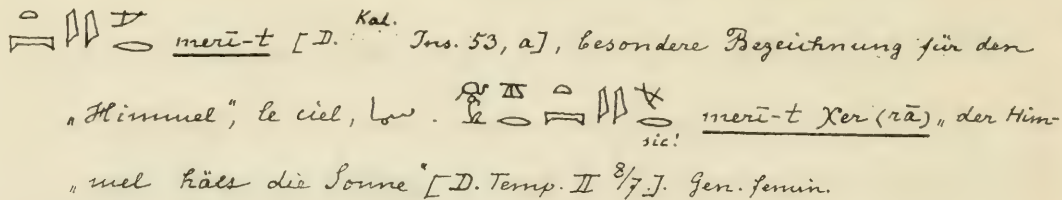 merī-t [D. Kal. Ins. 53, a], besondere Bezeichnung für den
„Himmel“, le ciel, سما. sic! merī-t χer (rā) „der Him-
„mel hält die Sonne“ [D. Temp. II 8/7]. Gen. femin.